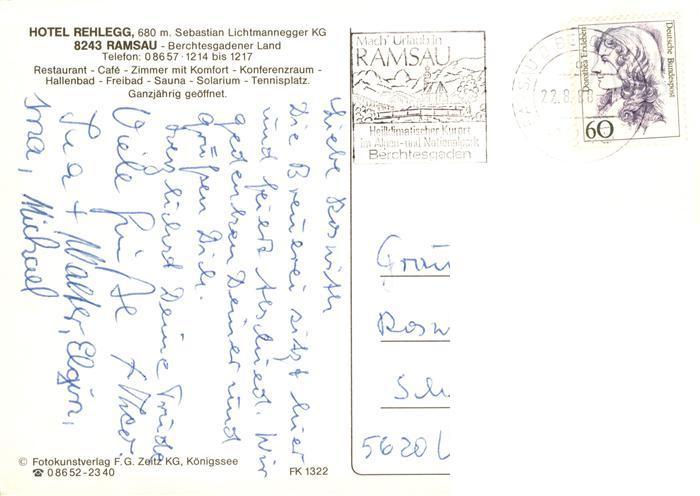 HOTEL REHLEGG, 680 m. Sebastian Lichtmannegger KG
8243 RAMSAU - Berchtesgadener Land
Telefon: 08657 · 1214 bis 1217
Restaurant - Café - Zimmer mit Komfort - Konferenzraum -
Hallenbad - Freibad - Sauna - Solarium - Tennisplatz.
Ganzjährig geöffnet.
Mach' Urlaub in
RAMSAU
Heilklimatischer Kurort
im Alpen- und Nationalpark
Berchtesgaden
22.8.88
Dorothea Erxleben
Deutsche Bundespost
60
Liebe Roswith
Die Brauerei sitzt hier
und feiert Abschied. Wir
gedenken Deiner und
grüßen Dich.
Herzlichst Deine Trude
Viele Grüße + Theo.
Lia + Walter, Elgin,
Irna, Michael
Frau
Rosw
Sch
5620
© Fotokunstverlag F. G. Zeitz KG, Königssee
☎ 08652-2340
FK 1322